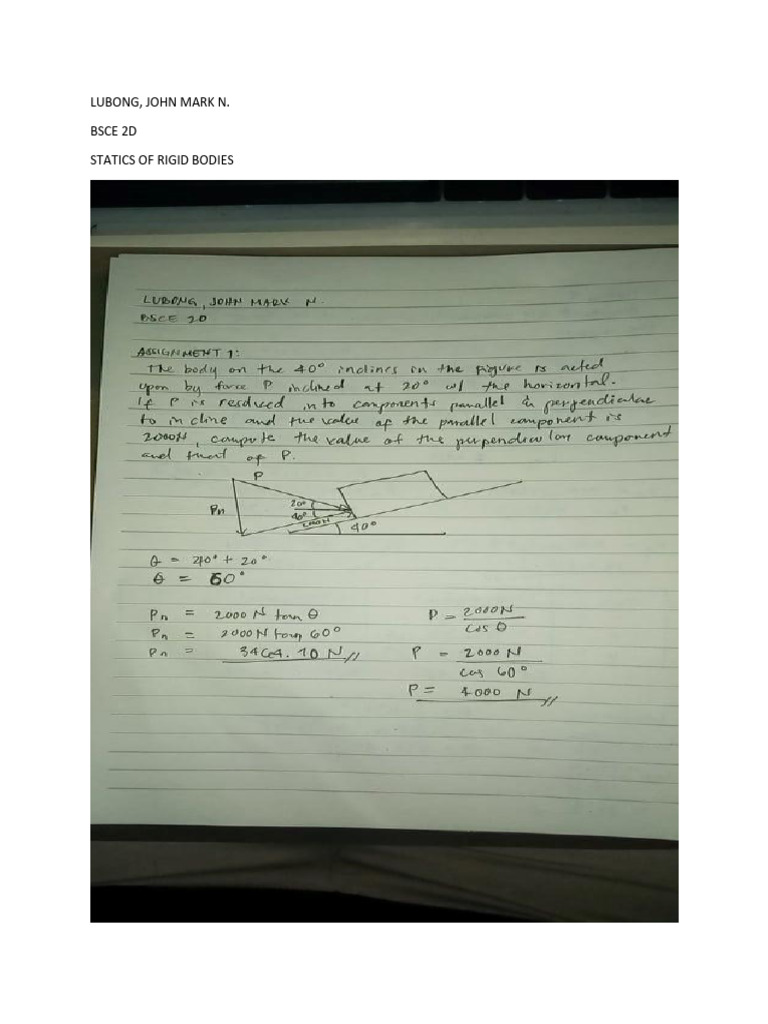 LUBONG, JOHN MARK N.
BSCE 2D
STATICS OF RIGID BODIES
LUBONG, JOHN MARK N.
BSCE 2D
ASSIGNMENT 1:
The body on the 40° inclines in the figure is acted
upon by force P inclined at 20° w/ the horizontal.
If P is resolved into components parallel & perpendicular
to incline and the value of the parallel component is
2000N, compute the value of the perpendicular component
and that of P.
P
20°
Pn
40°
2000N
40°
θ = 40° + 20°
θ = 60°
Pn = 2000 N tan θ
P = 2000N
cos θ
Pn = 2000 N tan 60°
Pn = 3464.10 N //
P = 2000 N
cos 60°
P = 4000 N //